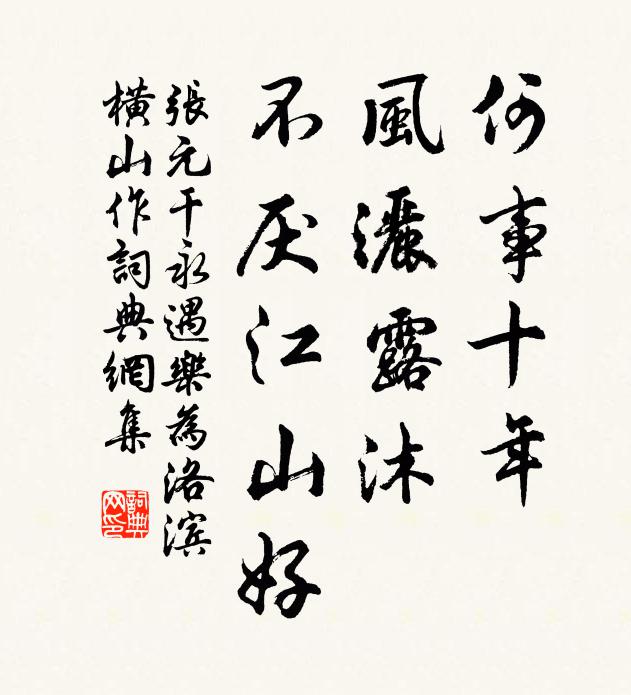 何事十年
風灑露沐
不厌江山好
張元干永遇樂為洛滨
横山作詞典網集
詞典网印